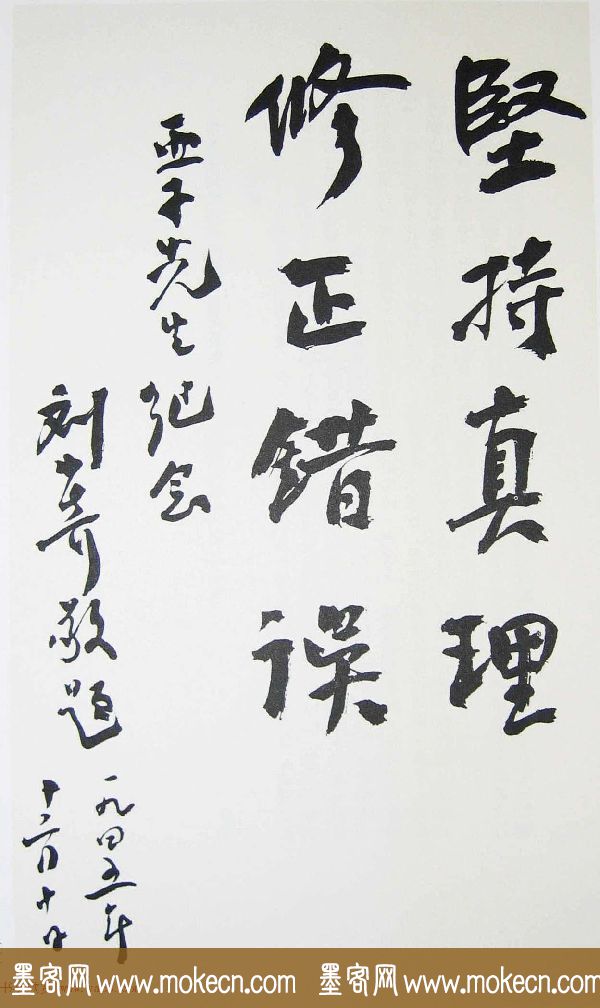 堅持真理
修正錯誤
亚子先生
纪念
刘少奇敬题
一九四五年
十二月十日
墨客网 www.mokecn.com 墨客网 www.mokecn.com